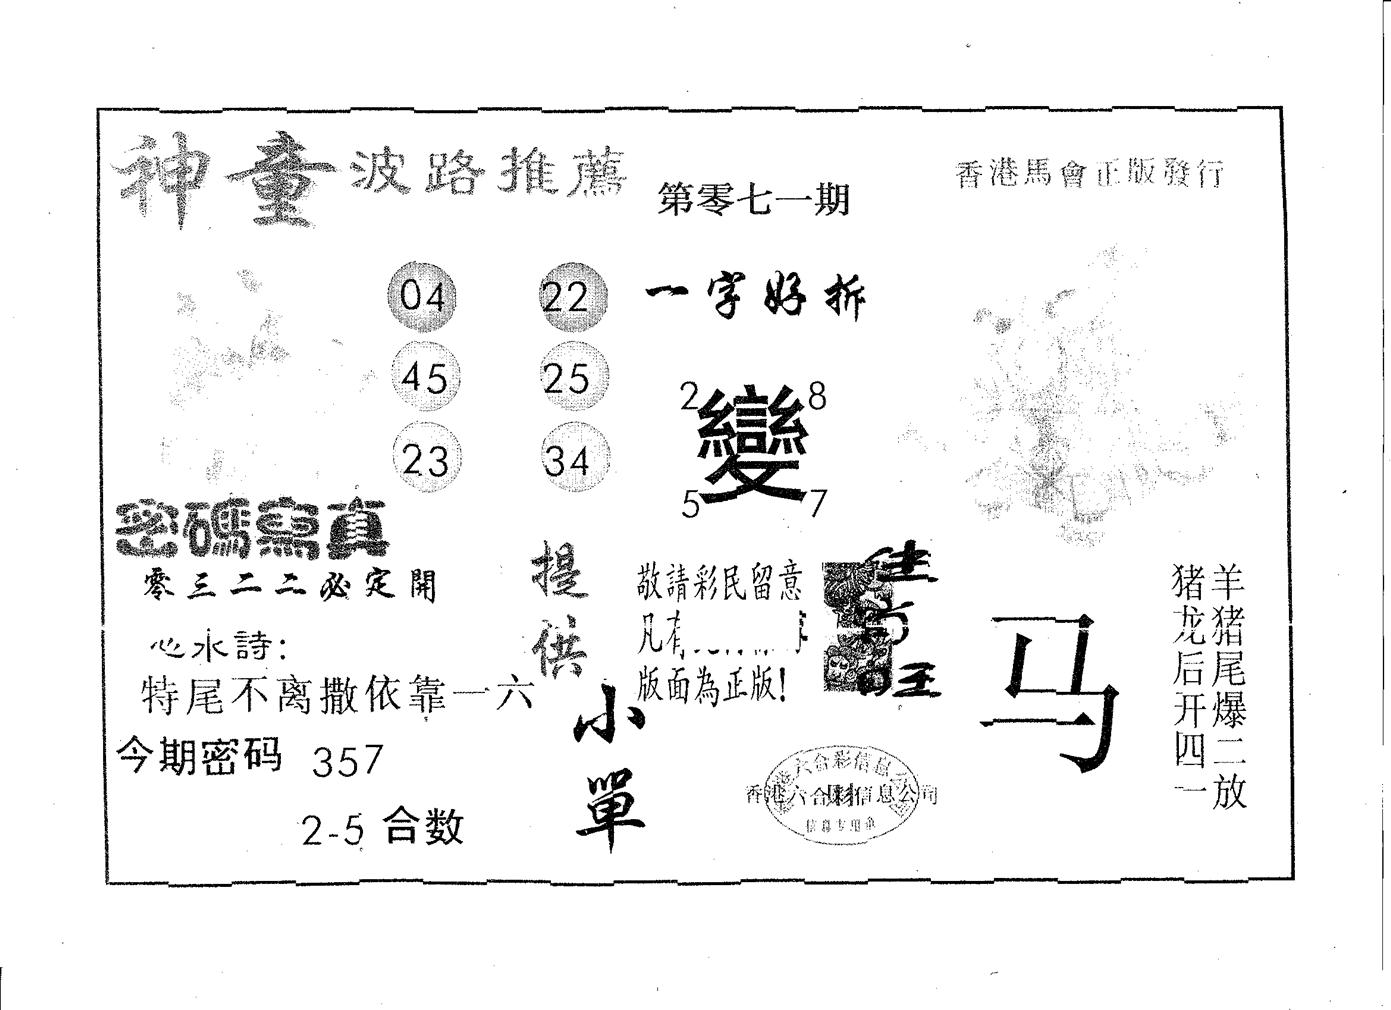 神童波路推薦
第零七一期
香港馬會正版發行
04 22
45 25
23 34
一字好拆
2 8
變
5 7
密碼寫真
零三二二必定開
心水詩:
特尾不离撒依靠一六
今期密码 357
2-5 合数
提供
小單
敬請彩民留意
凡有
版面為正版!
马
羊猪尾爆二放
猪龙后开四一
香港六合彩信息公司
香港六合彩信息公司